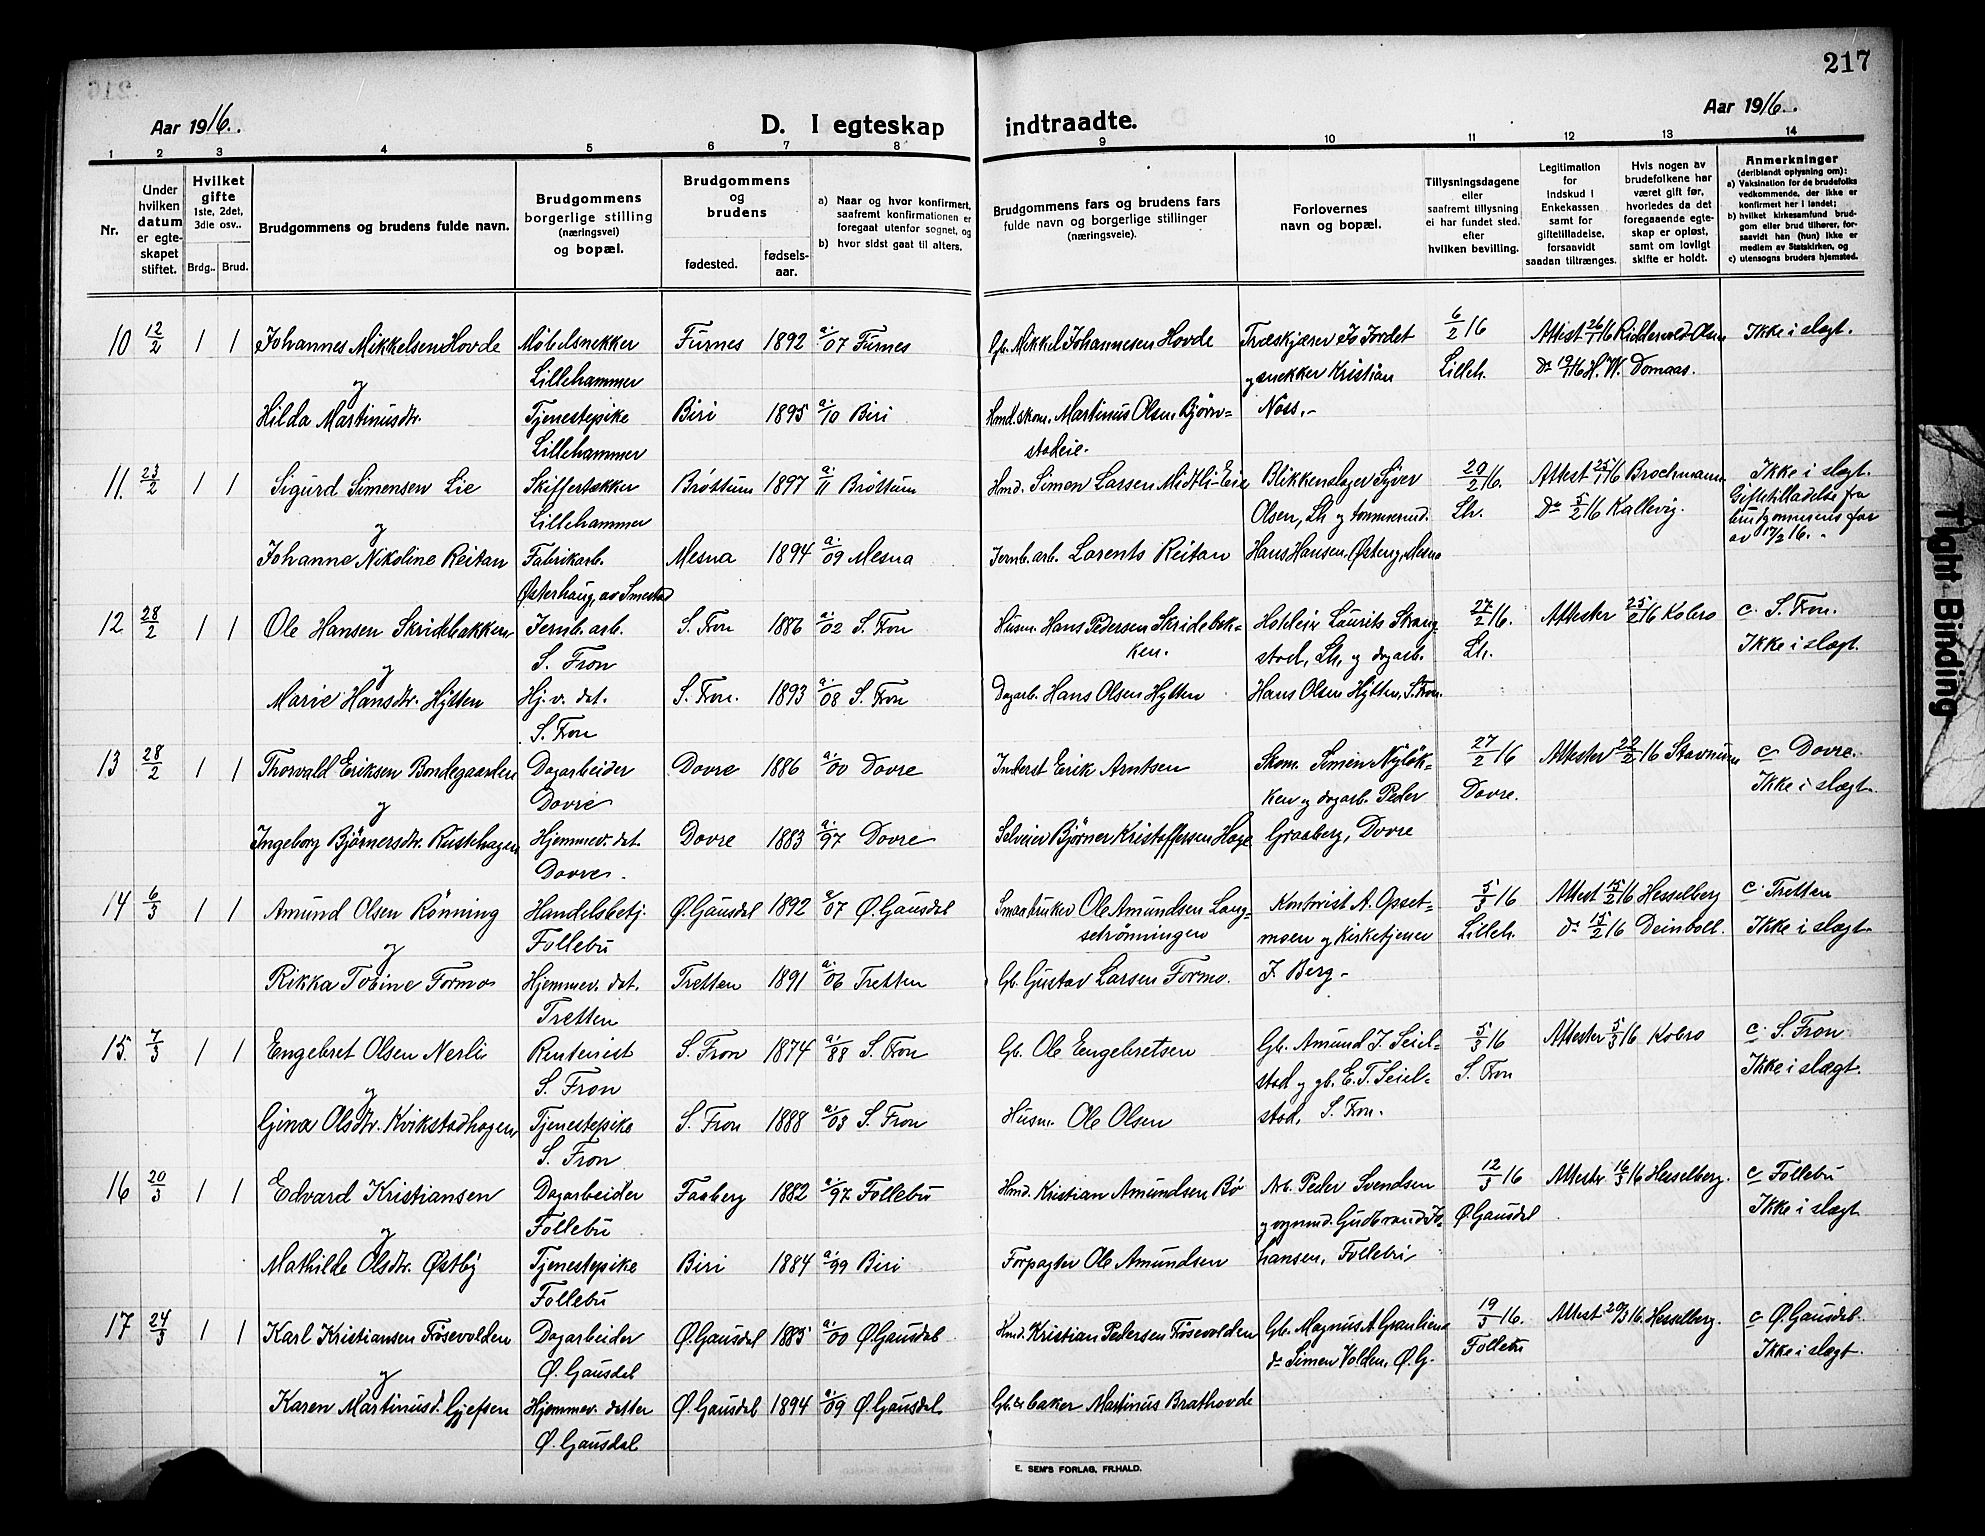 217
Aar 1916.
D. I egteskap
indtraadte.
Aar 1916.
1 2 3 4 5 6 7 8 9 10 11 12 13 14
Nr.
Under hvilken datum er egteskapet stiftet.
Hvilket gifte 1ste, 2det, 3die osv..
Brdg.. Brud.
Brudgommens og brudens fulde navn.
Brudgommens borgerlige stilling (næringsvei) og bopæl.
Brudgommens og brudens
fødested.
fødselsaar.
a) Naar og hvor konfirmert, saafremt konfirmationen er foregaat utenfor sognet, og
b) hvor sidst gaat til alters.
Brudgommens fars og brudens fars fulde navn og borgerlige stillinger (næringsveie).
Forlovernes navn og bopæl.
Tillysningsdagene eller saafremt tillysning ei har fundet sted. efter hvilken bevilling.
Legitimation for Indskud i Enkekassen samt for giftetilladelse, forsaavidt saadan tiltrænges.
Hvis nogen av brudefolkene har været gift før, hvorledes da det foregaaende egteskap er opløst, samt om lovligt skifte er holdt.
Anmerkninger (deriblandt oplysning om):
a) Vaksination for de brudefolks vedkommende, der ikke er konfirmert her i landet;
b) hvilket kirkesamfund brudgom eller brud tilhører, forsaavidt han (hun) ikke er medlem av Statskirken, og
c) utensogns bruders hjemsted.
10 12/2 1 1 Johannes Mikkelsen Hovde Møbelsnekker Furnes 1892 a:/07 Furnes Gb. Mikkel Johannesen Hovde Træskjærer Jo Jordet 6/2 16 Attest 26/1 16 Riddervold-Olsen Ikke i slægt.
og Lillehammer og snekker Kristian Lilleh. Do 19/1 16 H. W. Domaas.
Hilda Martinusdtr. Tjenestepike Biri 1895 a:/10 Biri Hmd. skom. Martinus Olsen Bjørn- Noss.-
Lillehammer stadeie.
11. 23/2 1 1 Sigurd Simensen Lie Skiffertækker Brøttum 1897 a:/11 Brøttum Hmd. Simen Larsen Midtli-Eie Blikkenslager Syver 20/2 16. Attest 25/1 16 Brochmann Ikke i slægt.
og Lillehammer Olsen, Lh og tømmermd. Lh. Do 5/2 16 Kallevig. Giftetilladelse fra
brudgommens far
av 17/2 16.
Johanne Nikoline Reitan Fabrikarb. Mesna 1894 a:/09 Mesna Jernb. arb. Lorents Reitan Hans Hansen. Østeng, Mesna
Østerhaug, av Smestad
12 28/2 1 1 Ole Hansen Skridebakken Jernb. arb. S. Fron 1886 a:/02 S. Fron Husm. Hans Pedersen Skridebak- Hoteleier Laurits Strang- 27/2 16. Attester 25/2 16 Kobro c. S. Fron.
og S. Fron ken. stad, Lh, og dagarb. Lh. Ikke i slægt.
Marie Hansdtr. Hytten Hj. v. dat. S. Fron. 1893 a:/08 S. Fron Dagarb. Hans Olsen Hytten Hans Olsen Hytten, S. Fron.
S. Fron
13 28/2 1 1 Thorvald Eriksen Bondegaarden Dagarbeider Dovre 1886 a:/00 Dovre Inderst Erik Arntsen Skom. Simen Nyløk- 27/2 16 Attester 22/2 16 Stavnum c Dovre.
og Dovre ken og dagarb. Peder Dovre. Ikke i slægt.
Ingeborg Bjørnersdtr. Rustehagen Hjemmev. dat. Dovre 1883 a:/97 Dovre Selveier Bjørner Kristoffersen Hage Graaberg, Dovre
Dovre.
14 6/3 1 1 Amund Olsen Rønning Handelsbetj. Ø. Gausdal 1892 a:/07 Ø. Gausdal Smaabruker Ole Amundsen Lang- Kontorist A. Opset- 5/3 16 Attest 15/2 16 Hesselberg c. Tretten
og Follebu setrønningen moen og Kirketjener Lilleh. Do 15/2 16 Deinboll. Ikke i slægt.
Rikka Tobine Formo Hjemmev. dat. Tretten 1891 a:/06 Tretten Gb. Gustav Larsen Formo. J. Berg -
Tretten
15. 7/3 1 1 Engebret Olsen Nerli Rentenist S. Fron 1874 a:/88 S. Fron Gb. Ole Engebretsen Gb. Amund J. Seiel- 5/3 16 Attester 5/3 16 Kobro c. S. Fron
og S. Fron stad og gb. E. T. Seiel- S. Fron Ikke i slægt.
Gina Olsdtr. Kvikstadhagen Tjenestepike S. Fron 1888 a:/03 S. Fron Husm. Ole Olsen stad, S. Fron.
S. Fron
16 20/3 1 1 Edvard Kristiansen Dagarbeider Faaberg 1882 a:/97 Follebu Hmd. Kristian Amundsen Bø Arb. Peder Svendsen 12/3 16 Attester 16/3 16 Hesselberg. c Follebu
og Follebu og vognmd. Gudbrand Jo- Ø. Gausdal Ikke i slægt
Mathilde Olsdtr. Østby Tjenestepike Biri 1884 a:/99 Biri Forpagter Ole Amundsen hansen, Follebu
Follebu
17 24/3 1 1 Karl Kristiansen Fosevolden Dagarbeider Ø. Gausdal 1885 a:/00 Ø. Gausdal Hmd. Kristian Pedersen Fosevolden Gb. Magnus A. Granlien 19/3 16. Attest 20/3 16. Hesselberg. c Ø. Gausdal.
og Ø. Gausdal do Simen Volden, Ø. G. Follebu Ikke i slægt.
Karen Martinusd. Gjefsen Hjemmev. datter Ø. Gausdal 1894 a:/09 Ø. Gausdal. Gb. & baker Martinus Brathovde
Ø. Gausdal
E. SEM'S FORLAG, FR.HALD.
Tight Binding